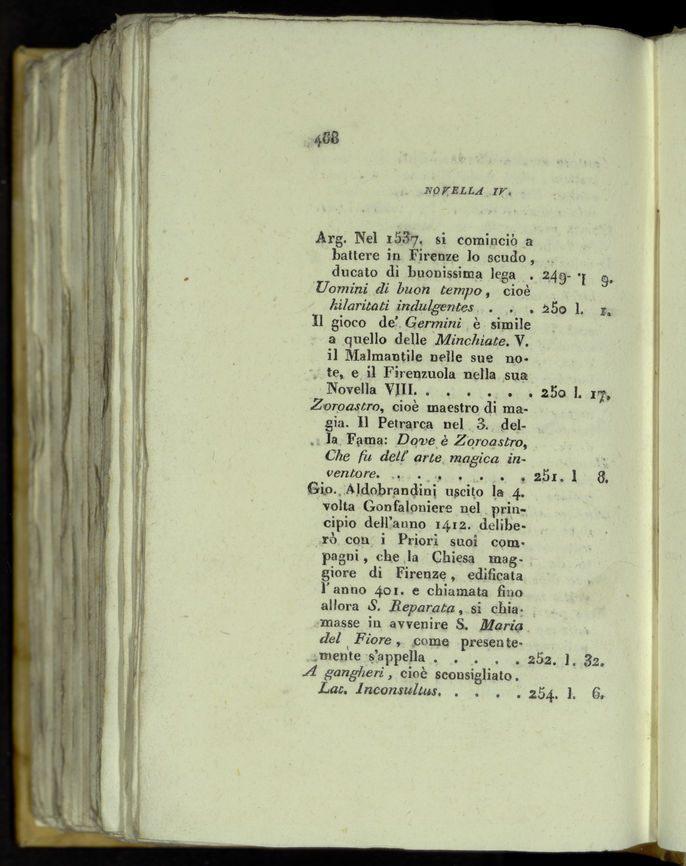 468
NOVELLA IV.
Arg. Nel 1537. si cominciò a
battere in Firenze lo scudo,
ducato di buonissima lega . 249- l 9.
Uomini di buon tempo, cioè
hilaritati indulgentes . . . 250 l. 1.
Il gioco de' Germini è simile
a quello delle Minchiate. V.
il Malmantile nelle sue no-
te, e il Firenzuola nella sua
Novella VIII. . . . . . . 250 l. 17.
Zoroastro, cioè maestro di ma-
gia. Il Petrarca nel 3. del-
la Fama: Dove è Zoroastro,
Che fu dell' arte magica in-
ventore. . . . . . . . 251. l 8.
Gio. Aldobrandini uscito la 4.
volta Gonfaloniere nel prin-
cipio dell'anno 1412. delibe-
rò con i Priori suoi com-
pagni, che la Chiesa mag-
giore di Firenze, edificata
l'anno 401. e chiamata fino
allora S. Reparata, si chia-
masse in avvenire S. Maria
del Fiore, come presente-
mente s'appella . . . . . 252. l. 32.
A gangheri, cioè sconsigliato.
Lat. Inconsultus. . . . . 254. l. 6.